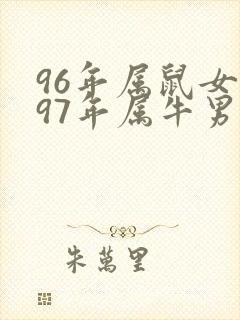 96年属鼠女
97年属牛男
朱萬里